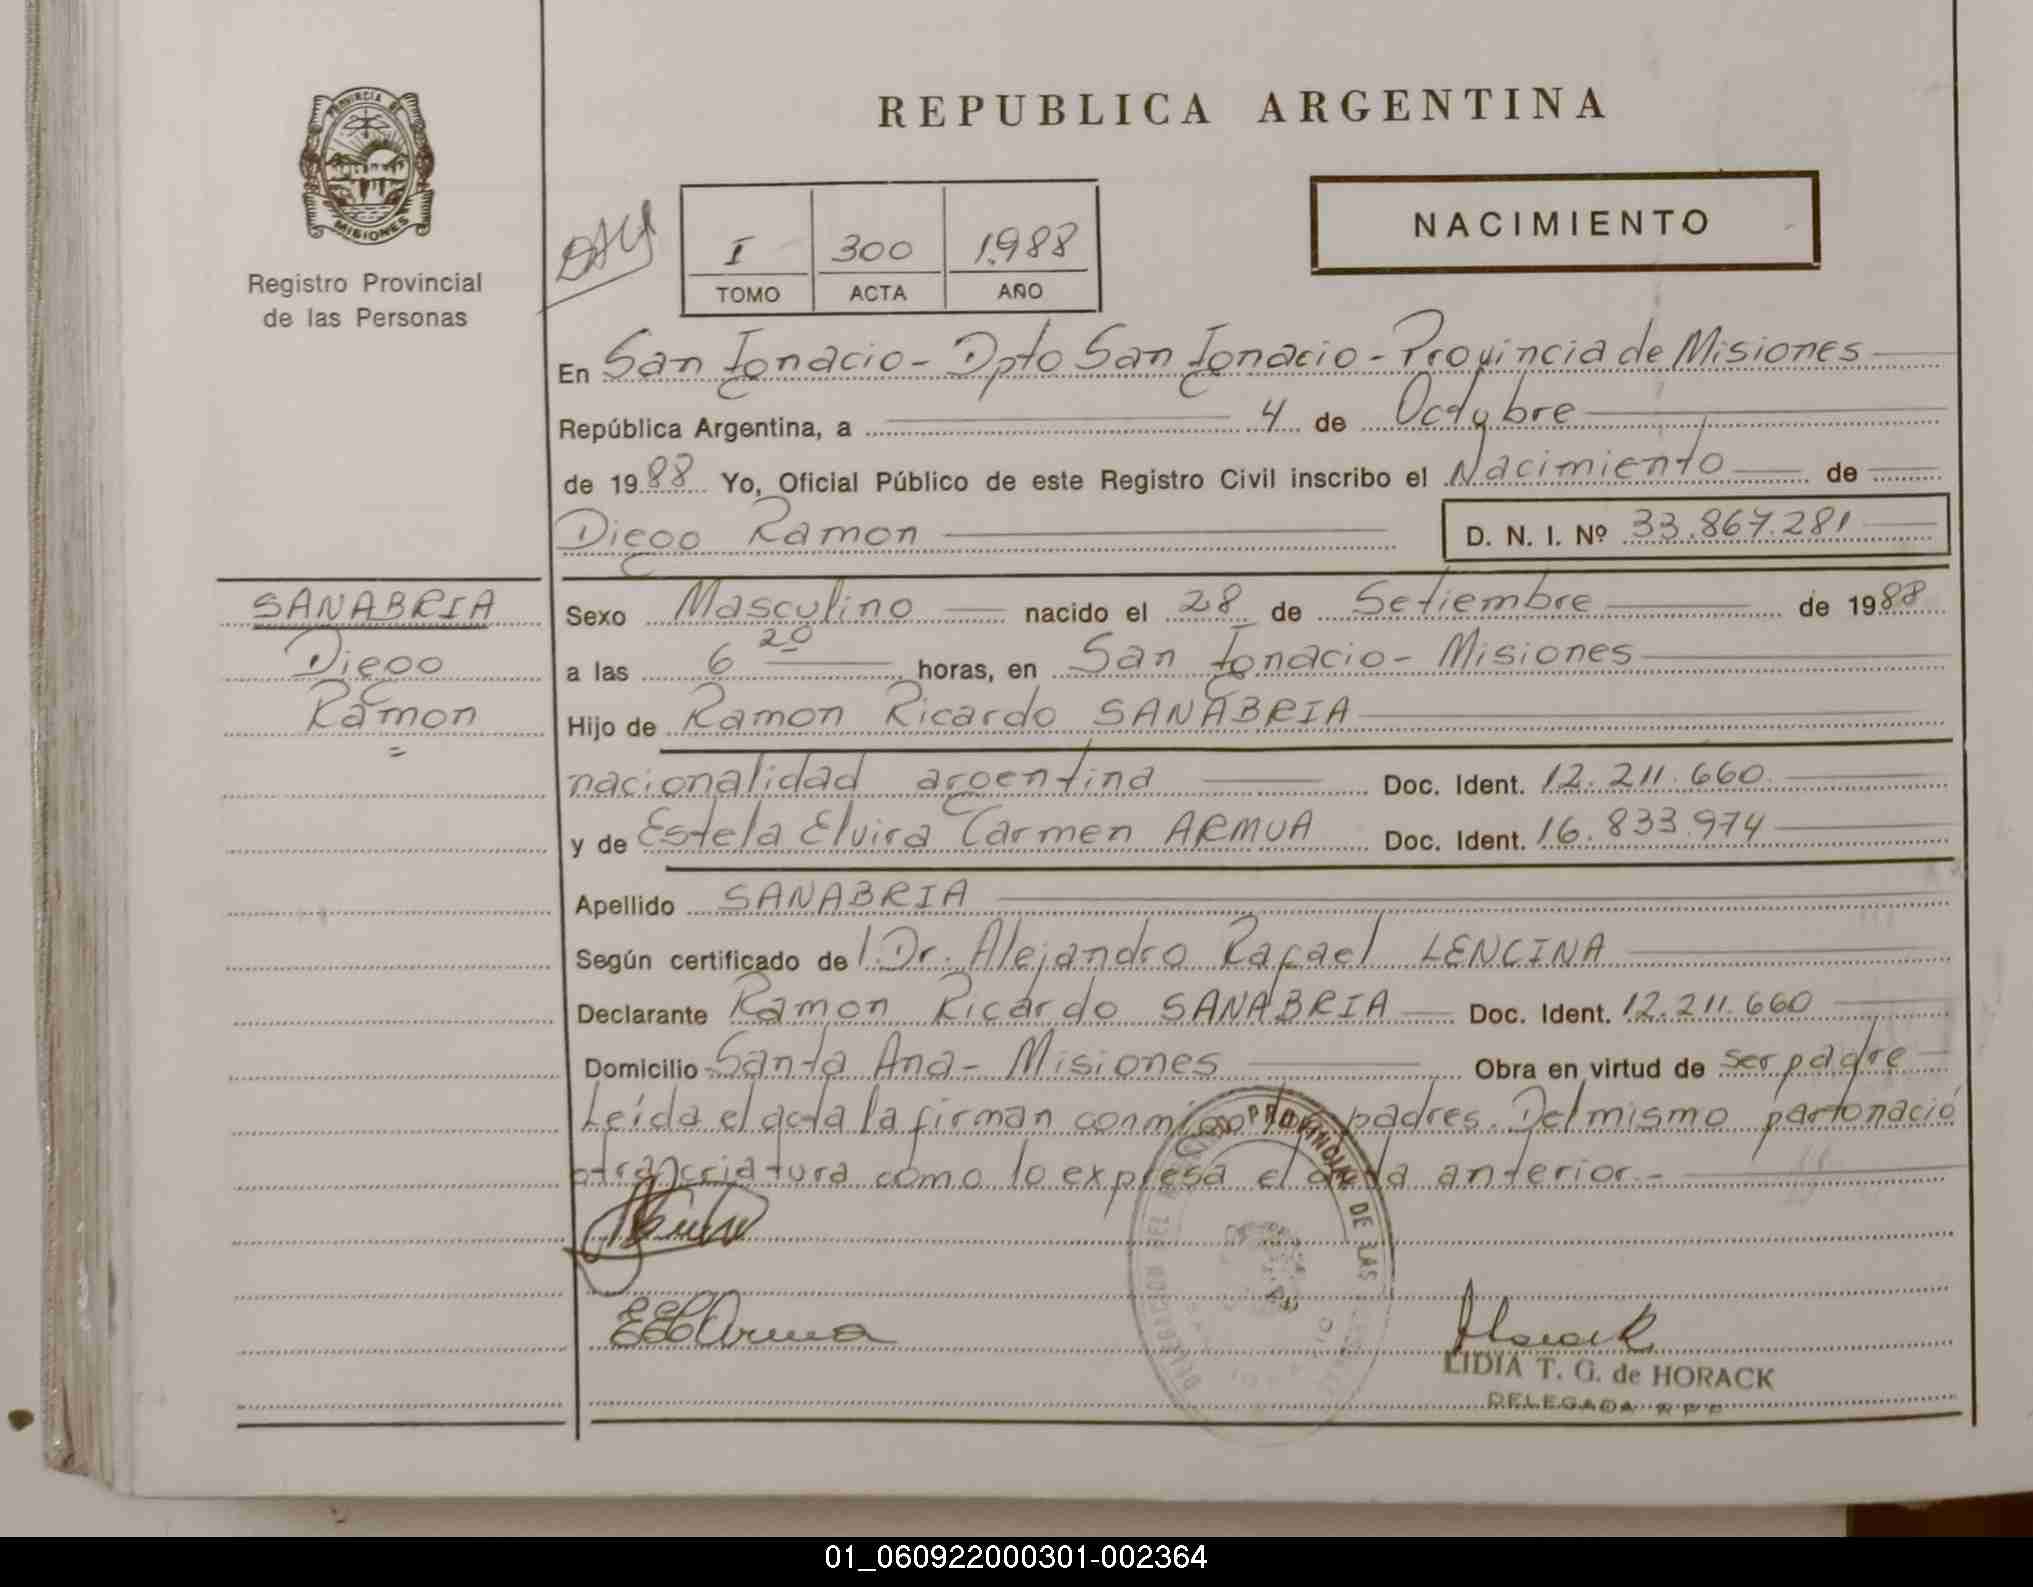 REPUBLICA ARGENTINA
NACIMIENTO
PROVINCIA DE
MISIONES
Registro Provincial
de las Personas
I 300 1.988
TOMO ACTA AÑO
En San Ignacio - Dpto San Ignacio - Provincia de Misiones
República Argentina, a 4 de Octubre
de 1988 Yo, Oficial Público de este Registro Civil inscribo el Nacimiento de
Diego Ramon D. N. I. Nº 33.867.281
SANABRIA
Diego
Ramon
=
Sexo Masculino nacido el 28 de Setiembre de 1988
a las 6 20 horas, en San Ignacio - Misiones
Hijo de Ramon Ricardo SANABRIA
nacionalidad argentina Doc. Ident. 12.211.660
y de Estela Elvira Carmen ARMUA Doc. Ident. 16.833.974
Apellido SANABRIA
Según certificado de l Dr. Alejandro Rafael LENCINA
Declarante Ramon Ricardo SANABRIA Doc. Ident. 12.211.660
Domicilio Santa Ana - Misiones Obra en virtud de ser padre
Leída el acta la firman conmigo los padres. Del mismo parto nació
otra criatura como lo expresa el acta anterior.-
PROVINCIAL DE LAS
EECArmua
Horack
LIDIA T. G. de HORACK
DELEGADA R.P.P.
01_060922000301-002364